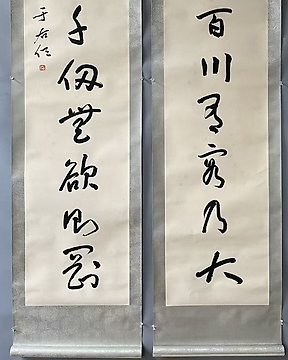 百川有容乃大
千仞無欲則剛
于右任